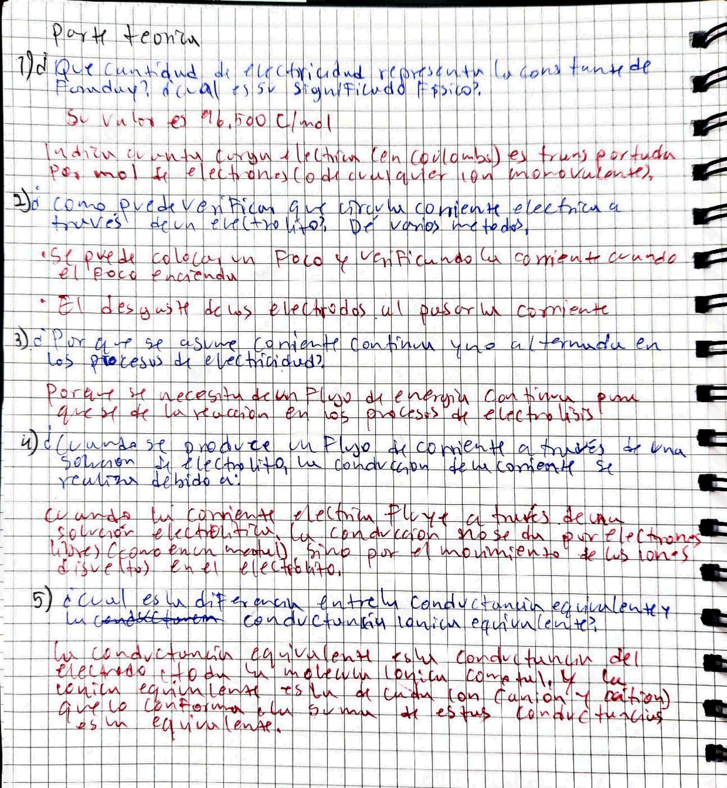 Parte teorica
1) ¿Que cantidad de electricidad representa la constante de
Faraday? ¿cual es su significado Fisico?.
Su valor es 96,500 C/mol
Indica cuanta carga electrica (en coulombs) es transportada
por mol de electrones (o de cualquier ion monovalente).
2) ¿ como puede verificar que circula corriente electrica a
través de un electrolito? De varios metodos,
• Se puede colocar un Foco y verificando la corriente cuando
el Foco encienda
• El desgaste de los electrodos al pasar la corriente
3) ¿Por que se asume corriente continua y no alternada en
los procesos de electricidad?
Porque se necesita de un Flujo de energia continua para
que se de la reaccion en los procesos de electrolisis
4) ¿Cuando se produce un Flujo de corriente a través de una
solucion de electrolito, la conduccion de la corriente se
realiza debido a:
cuando la corriente electrica Fluye a través de una
solución electrolitica, la conduccion no se da por electrones
libres (como en un metal), sino por el movimiento de los iones
disueltos en el electrolito.
5) ¿cual es la diferencia entre la conductancia equivalente y
la conductancia ionica equivalente?
La conductancia equivalente es la conductancia del
electrodo toda la molecula ionica y la
ionica equivalente es la de cada ion (anion y cation)
que lo conforma, la suma de estas conductancias
es la equivalente.